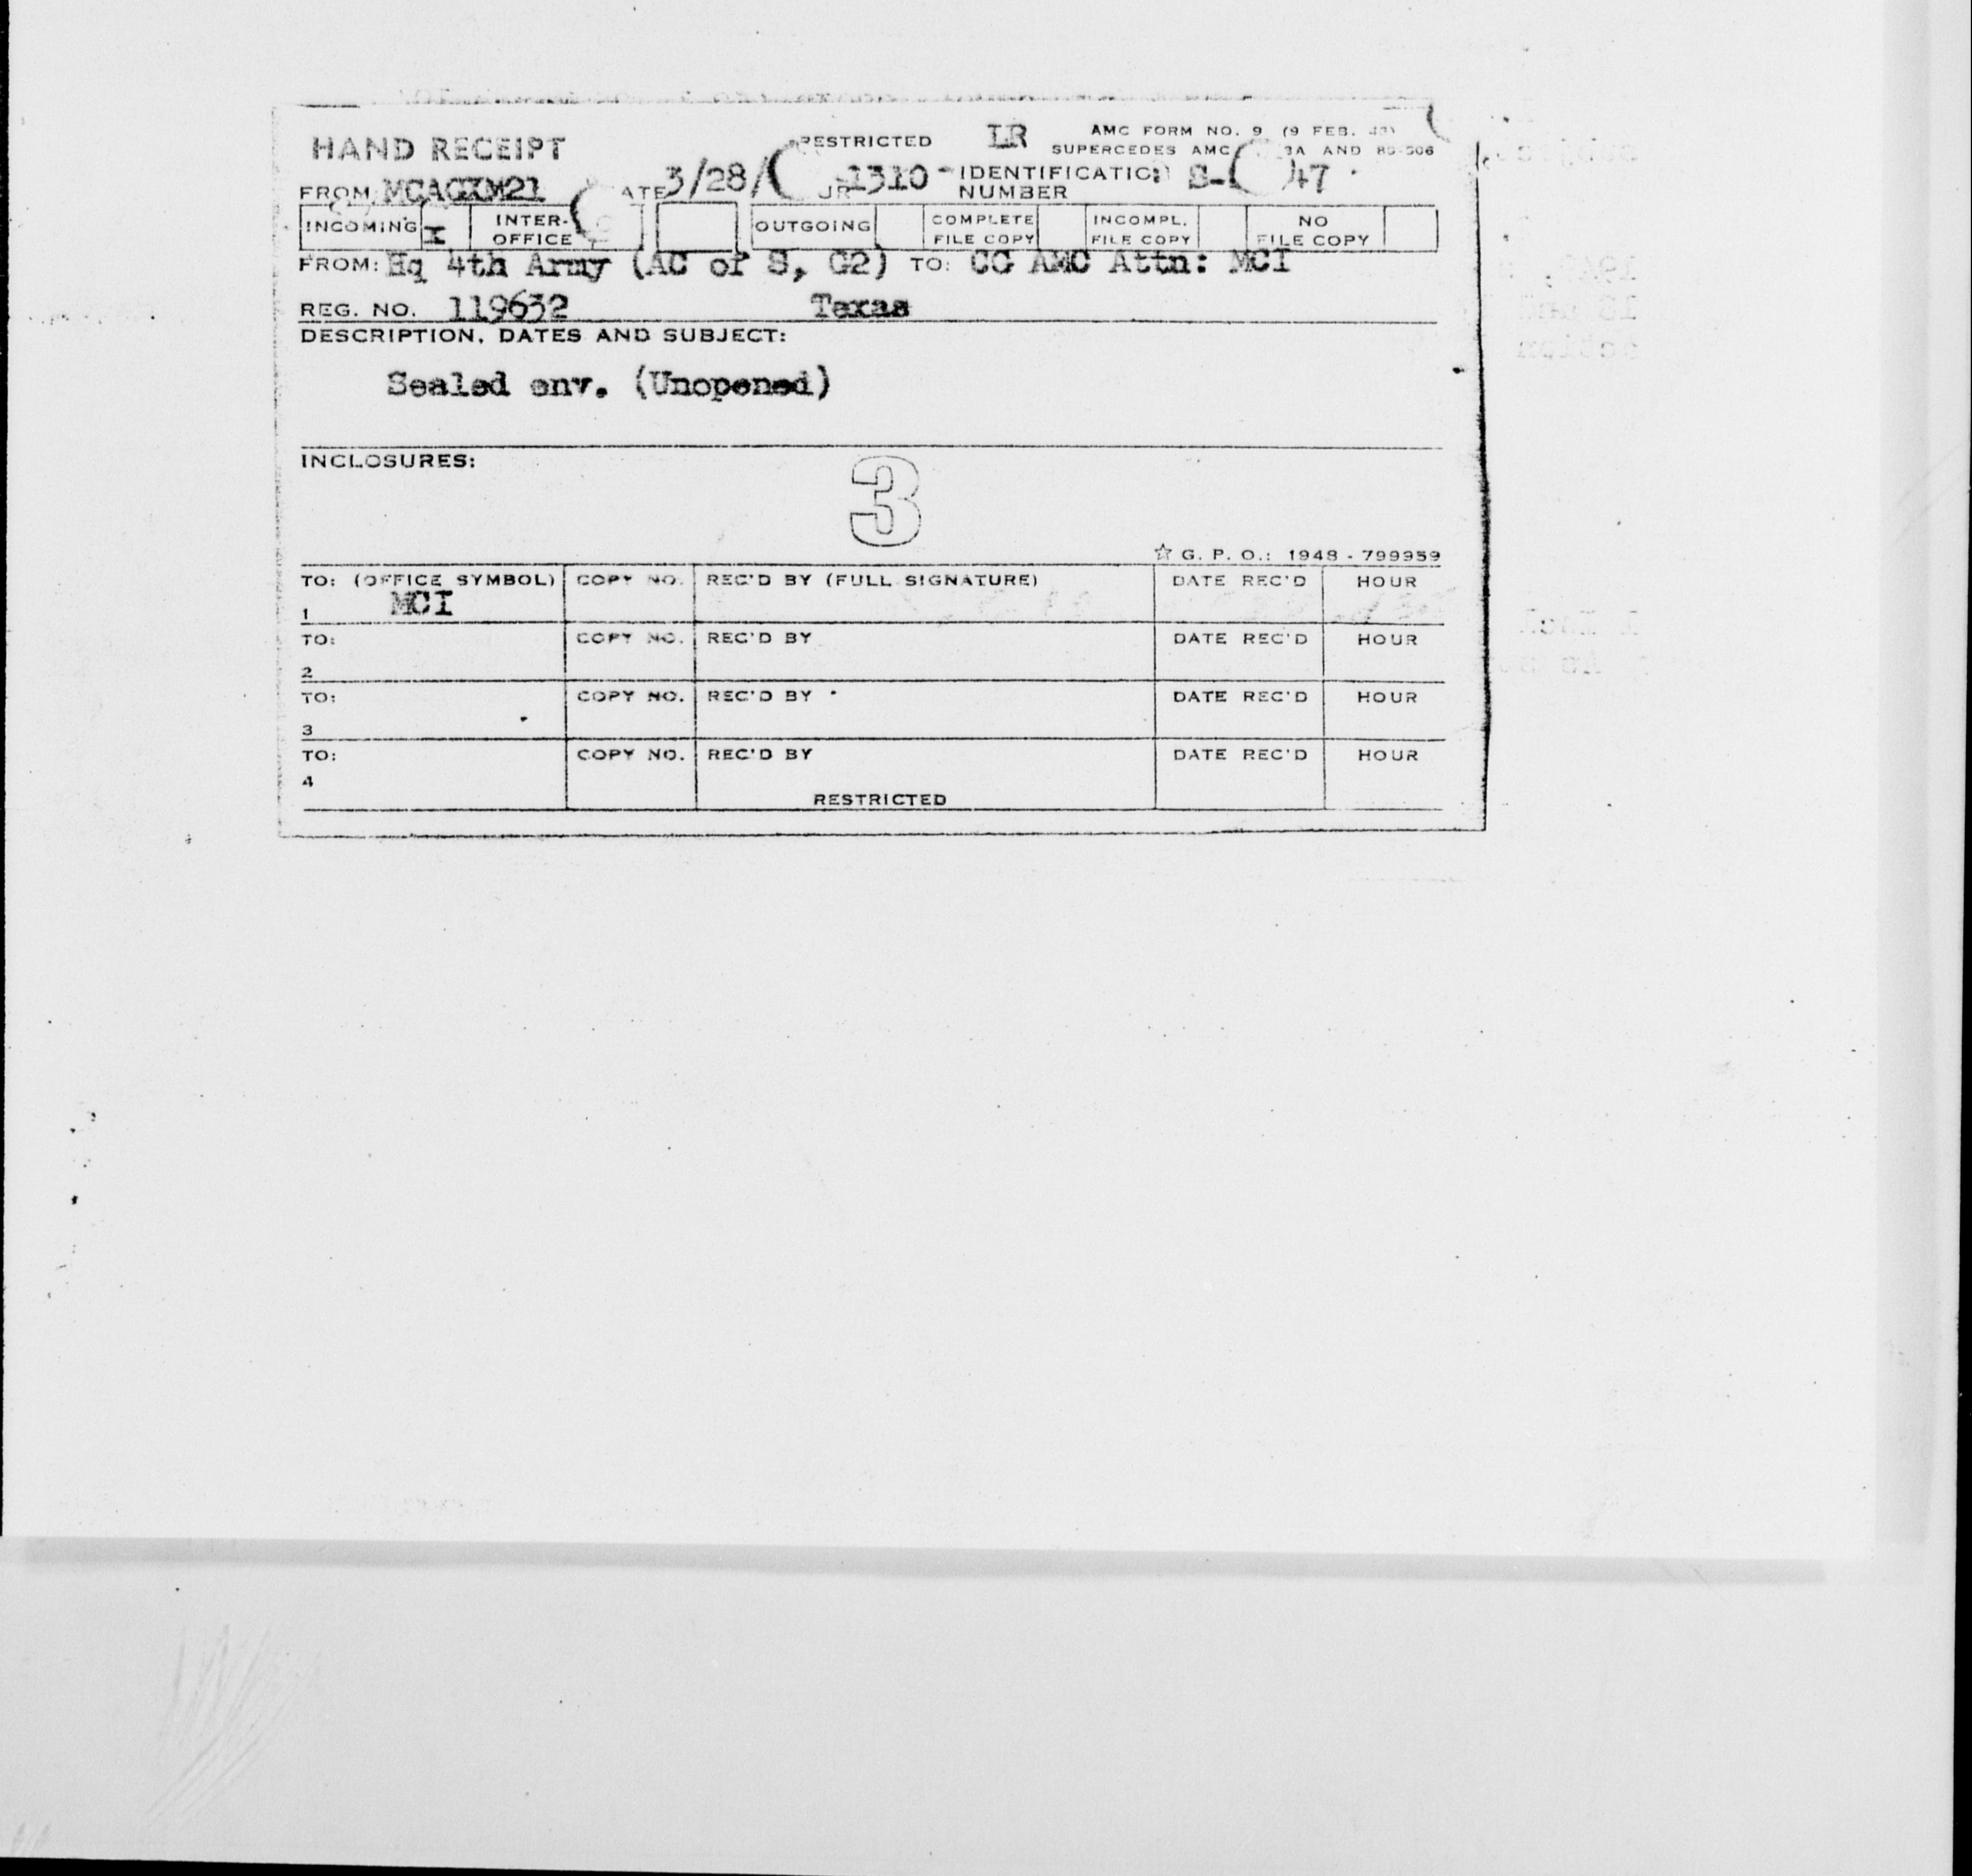 HAND RECEIPT RESTRICTED LR AMC FORM NO. 9 (9 FEB.
SUPERCEDES AMC 3A AND
FROM MCAGXM21 ATE 3/28/ UR 1310 IDENTIFICATION NUMBER S- 47
INCOMING X INTER-OFFICE OUTGOING COMPLETE FILE COPY INCOMPL. FILE COPY NO FILE COPY
FROM: Hq 4th Army (AC of S, G2) TO: CG AMC Attn: MCI
REG. NO. 119632 Texas
DESCRIPTION, DATES AND SUBJECT:
Sealed env. (Unopened)
INCLOSURES:
3
☆ G. P. O.: 1948 - 799959
TO: (OFFICE SYMBOL) COPY NO. REC'D BY (FULL SIGNATURE) DATE REC'D HOUR
1 MCI
TO: COPY NO. REC'D BY DATE REC'D HOUR
2
TO: COPY NO. REC'D BY DATE REC'D HOUR
3
TO: COPY NO. REC'D BY DATE REC'D HOUR
4
RESTRICTED